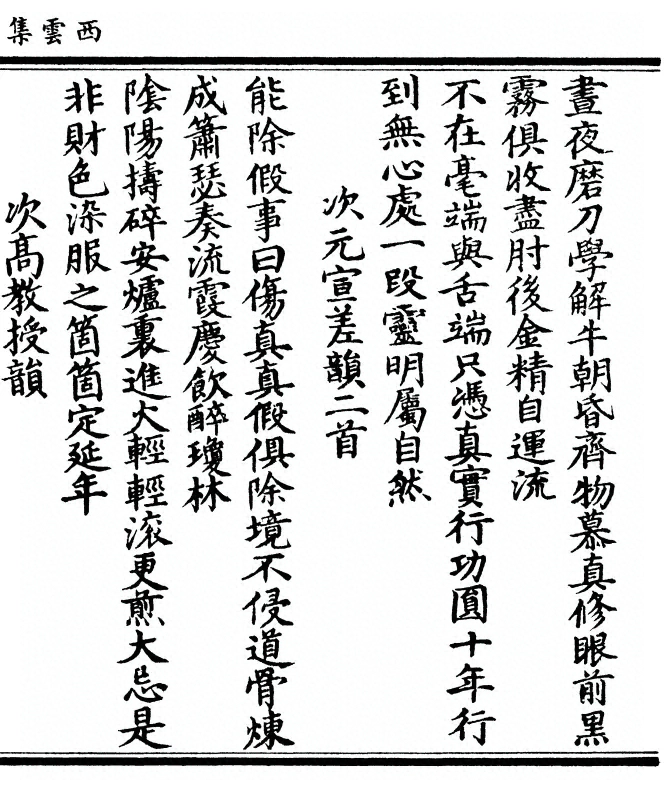 西雲集
晝夜磨刀學解牛朝昏齊物慕真修眼前黑
霧俱收盡肘後金精自運流
不在毫端與舌端只憑真實行功圓十年行
到無心處一段靈明屬自然
次元宣差韻二首
能除假事曰傷真真假俱除境不侵道骨煉
成簫瑟奏流霞慶飲醉瓊林
陰陽擣碎安爐裏進火輕輕滚更煎大忌是
非財色染服之箇箇定延年
次高教授韻